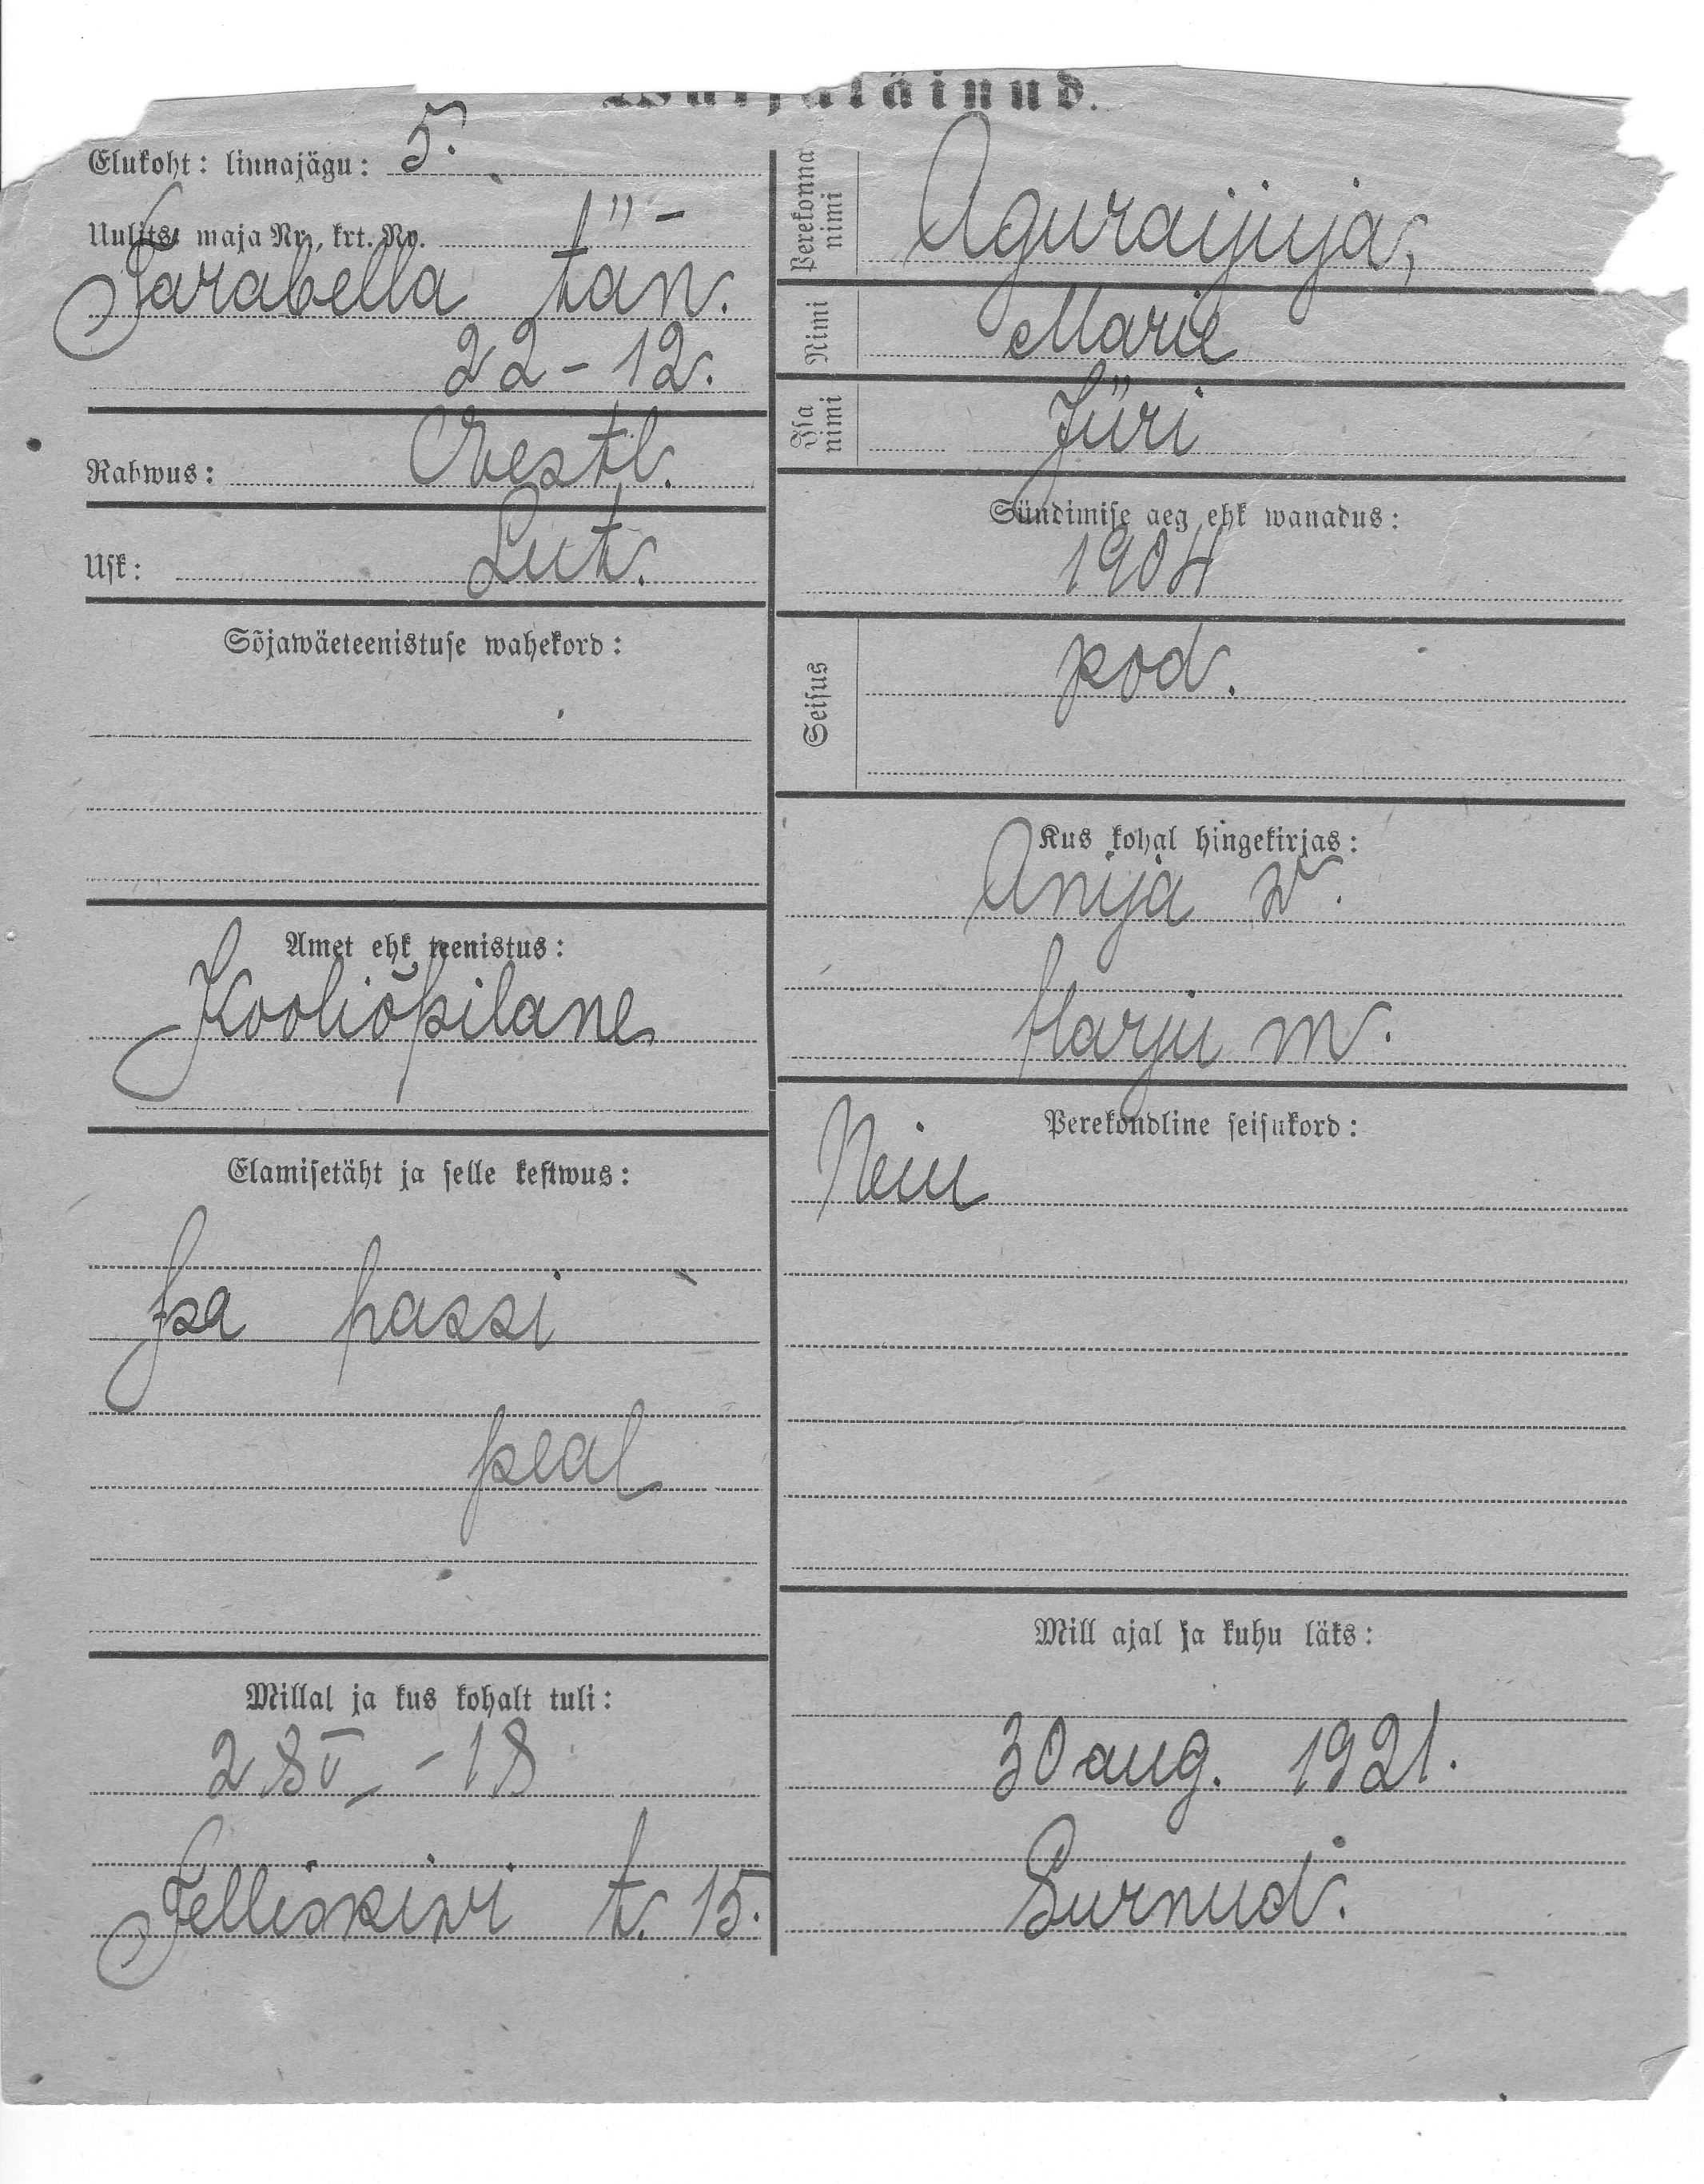 Wäljaläinud.
Elukoht: linnajägu: 5.
Uulits: maja Nr., krt. Nr.
Tarabella tän.
22-12.
Rahwus: Eestl.
Usk: Lut.
Sõjawäeteenistuse wahekord:
Amet ehk teenistus:
Kooliõpilane
Elamisetäht ja selle kestwus:
Isa passi
peal
Millal ja kus kohalt tuli:
28 V -18
Telliskiwi t. 15.
Perekonna nimi
Aguraijuja,
Nimi Marie
Isa nimi Jüri
Sündimise aeg ehk wanadus:
1904
Seisus pod.
Kus kohal hingekirjas:
Anija w.
Harju m.
Perekondline seisukord:
Neiu
Mill ajal ja kuhu läks:
30 aug. 1921.
Surnud.